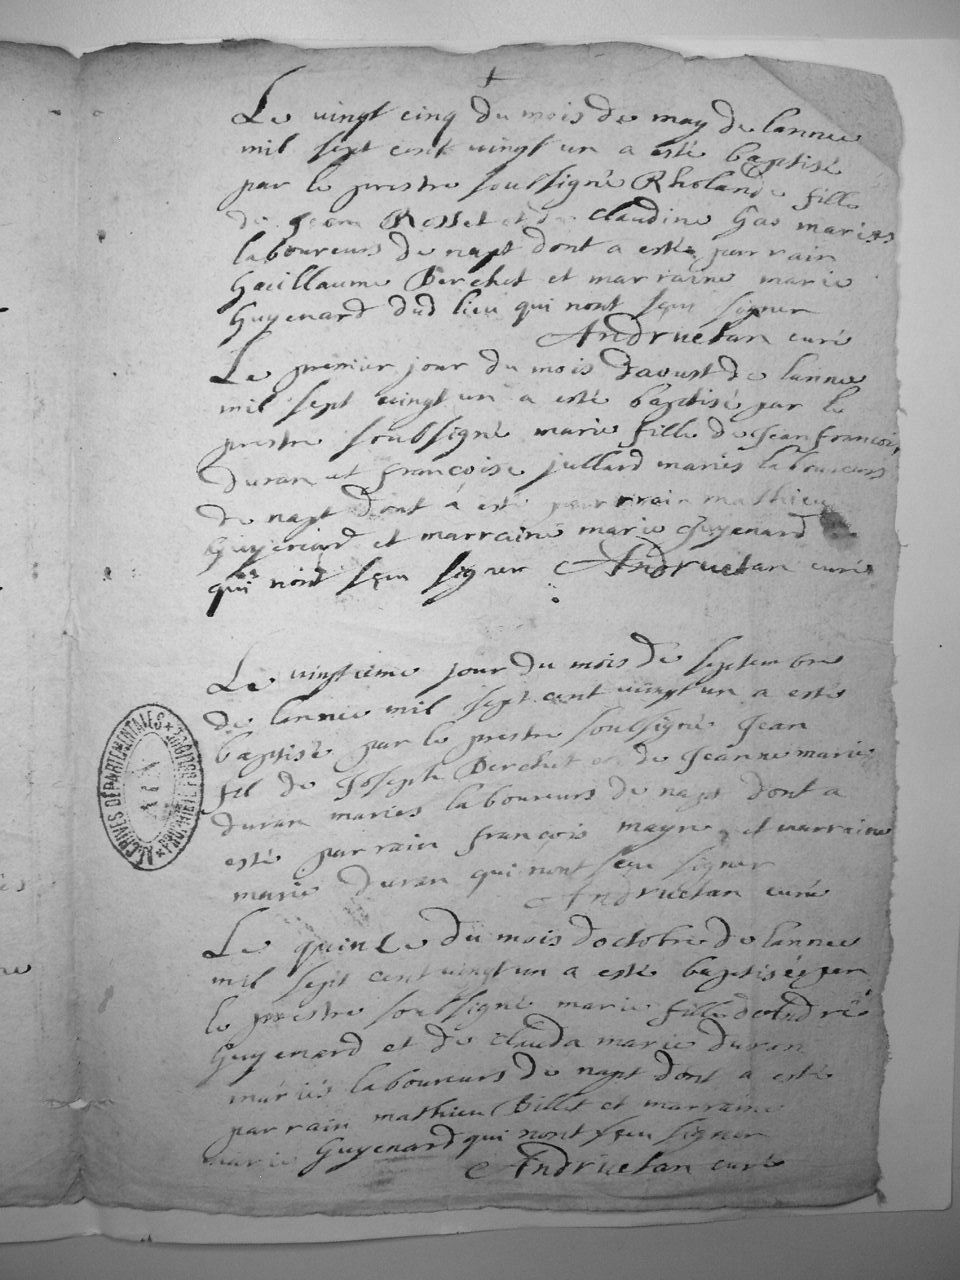 Le vingt cinq du mois de may de lannee
mil sept cent vingt un a esté baptisé
par le prestre soubsigné Rholande fille
de Jean Rosset et de Claudine Gao mariés
laboureurs de napt dont a esté parrain
Guillaume Berchet et marraine marie
Guyenard dud lieu qui nont sceu signer
Andruetan curé
Le premier jour du mois daoust de lannee
mil sept vingt un a esté baptisé par le
prestre soubsigné marie fille de Jean francois
duran et francoise jullard mariés laboureurs
de napt dont a esté parrain mathieu
Guyenard et marraine marie Guyenard
qui nont sceu signer Andruetan curé
Le vingtieme jour du mois de septembre
de lannee mil sept cent vingt un a esté
baptisé par le prestre soubsigné Jean
fil de Joseph Berchet et de Jeanne marie
duran mariés laboureurs de napt dont a
esté parrain françois mayne et marraine
marie duran qui nont sceu signer
Andruetan curé
Le quinze du mois doctobre de lannee
mil sept cent vingt un a esté baptisée par
le prestre soubsigné marie fille de André
Guyenard et de clauda marie duran
mariés laboureurs de napt dont a esté
parrain mathieu Billet et marraine
marie Guyenard qui nont sceu signer
Andruetan curé
ARCHIVES DÉPARTEMENTALES
PROPRIÉTÉ PUBLIQUE
AIN